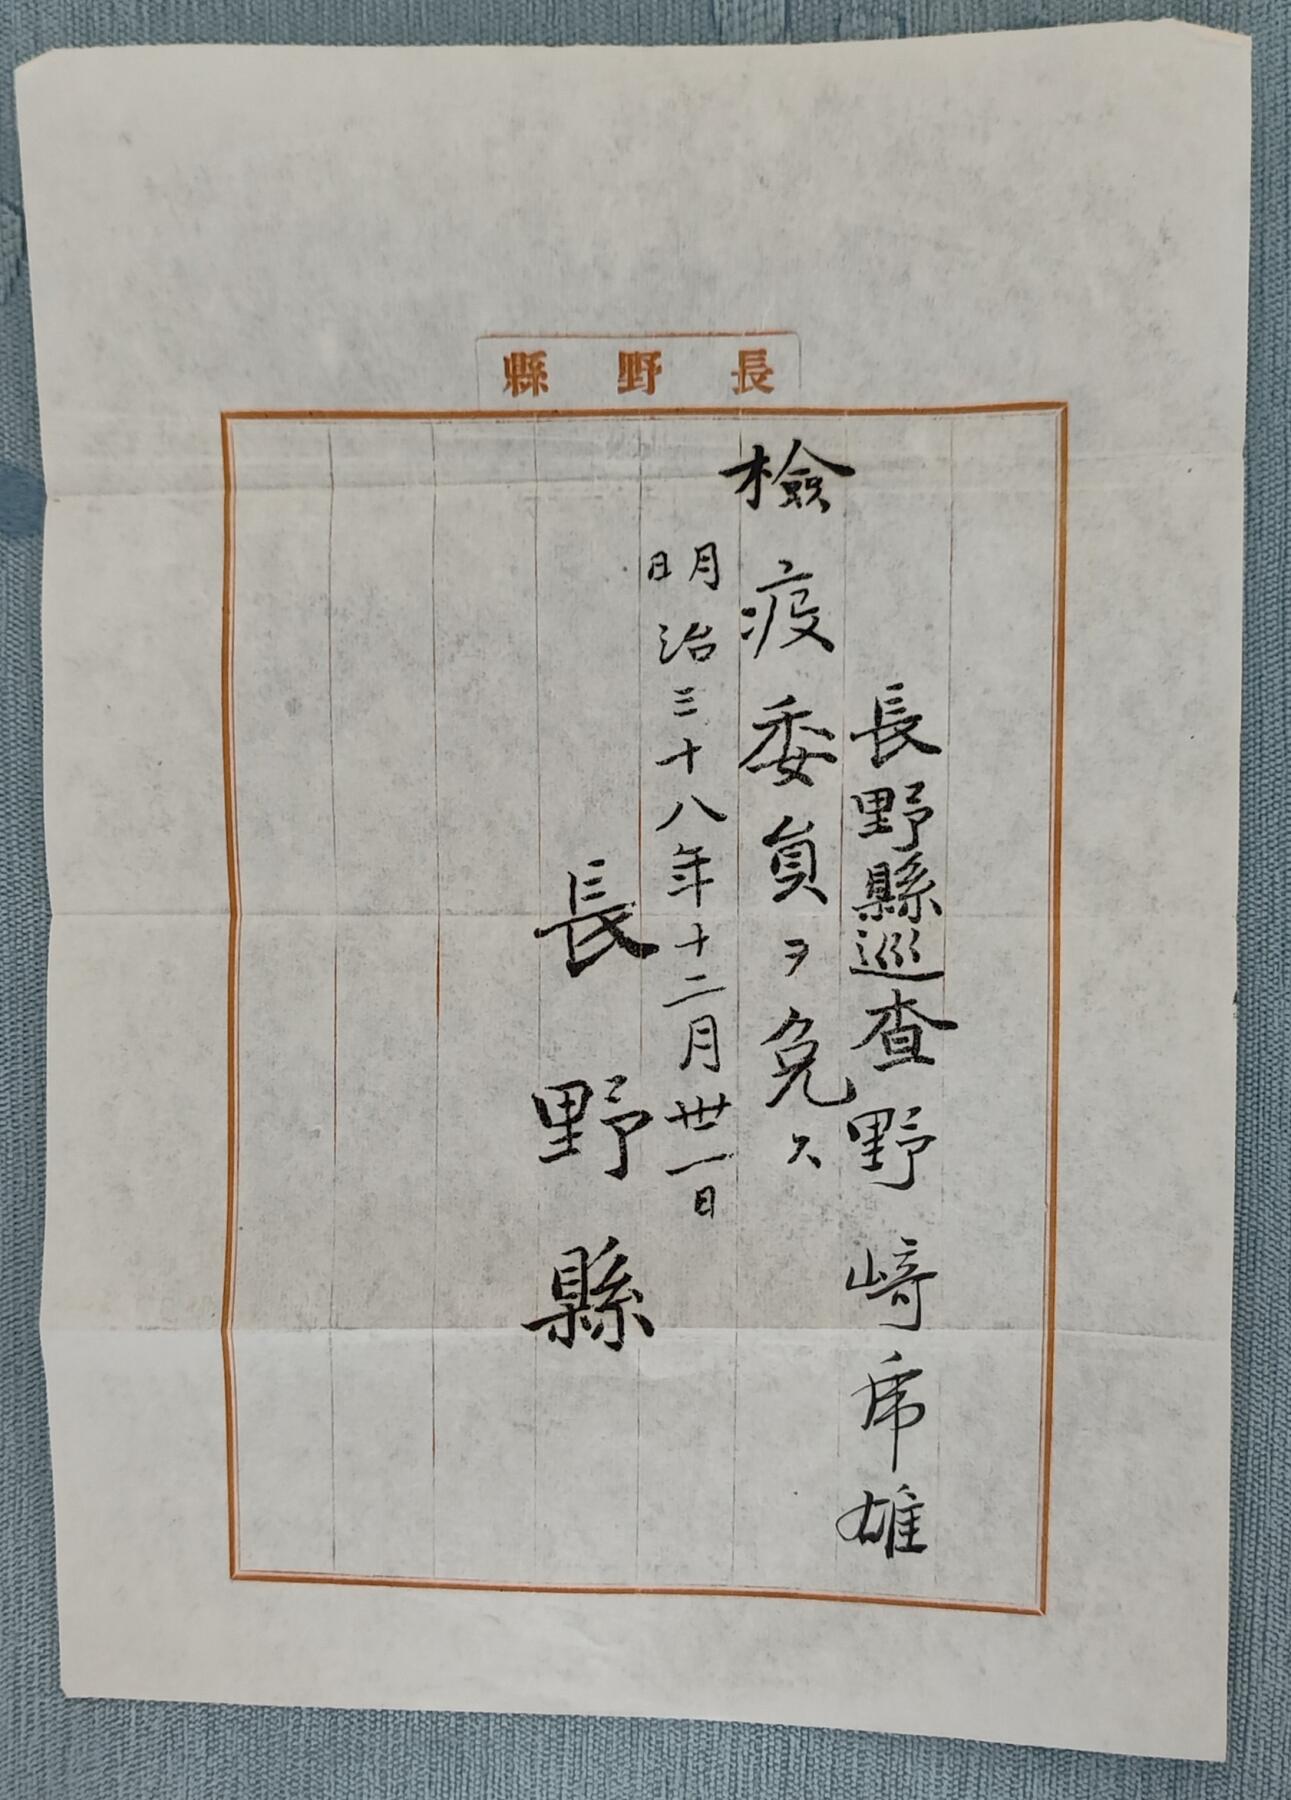 長野縣
長野縣巡査野﨑席雄
檢疫委員ヲ免ス
明治三十八年十二月丗一日
長野縣